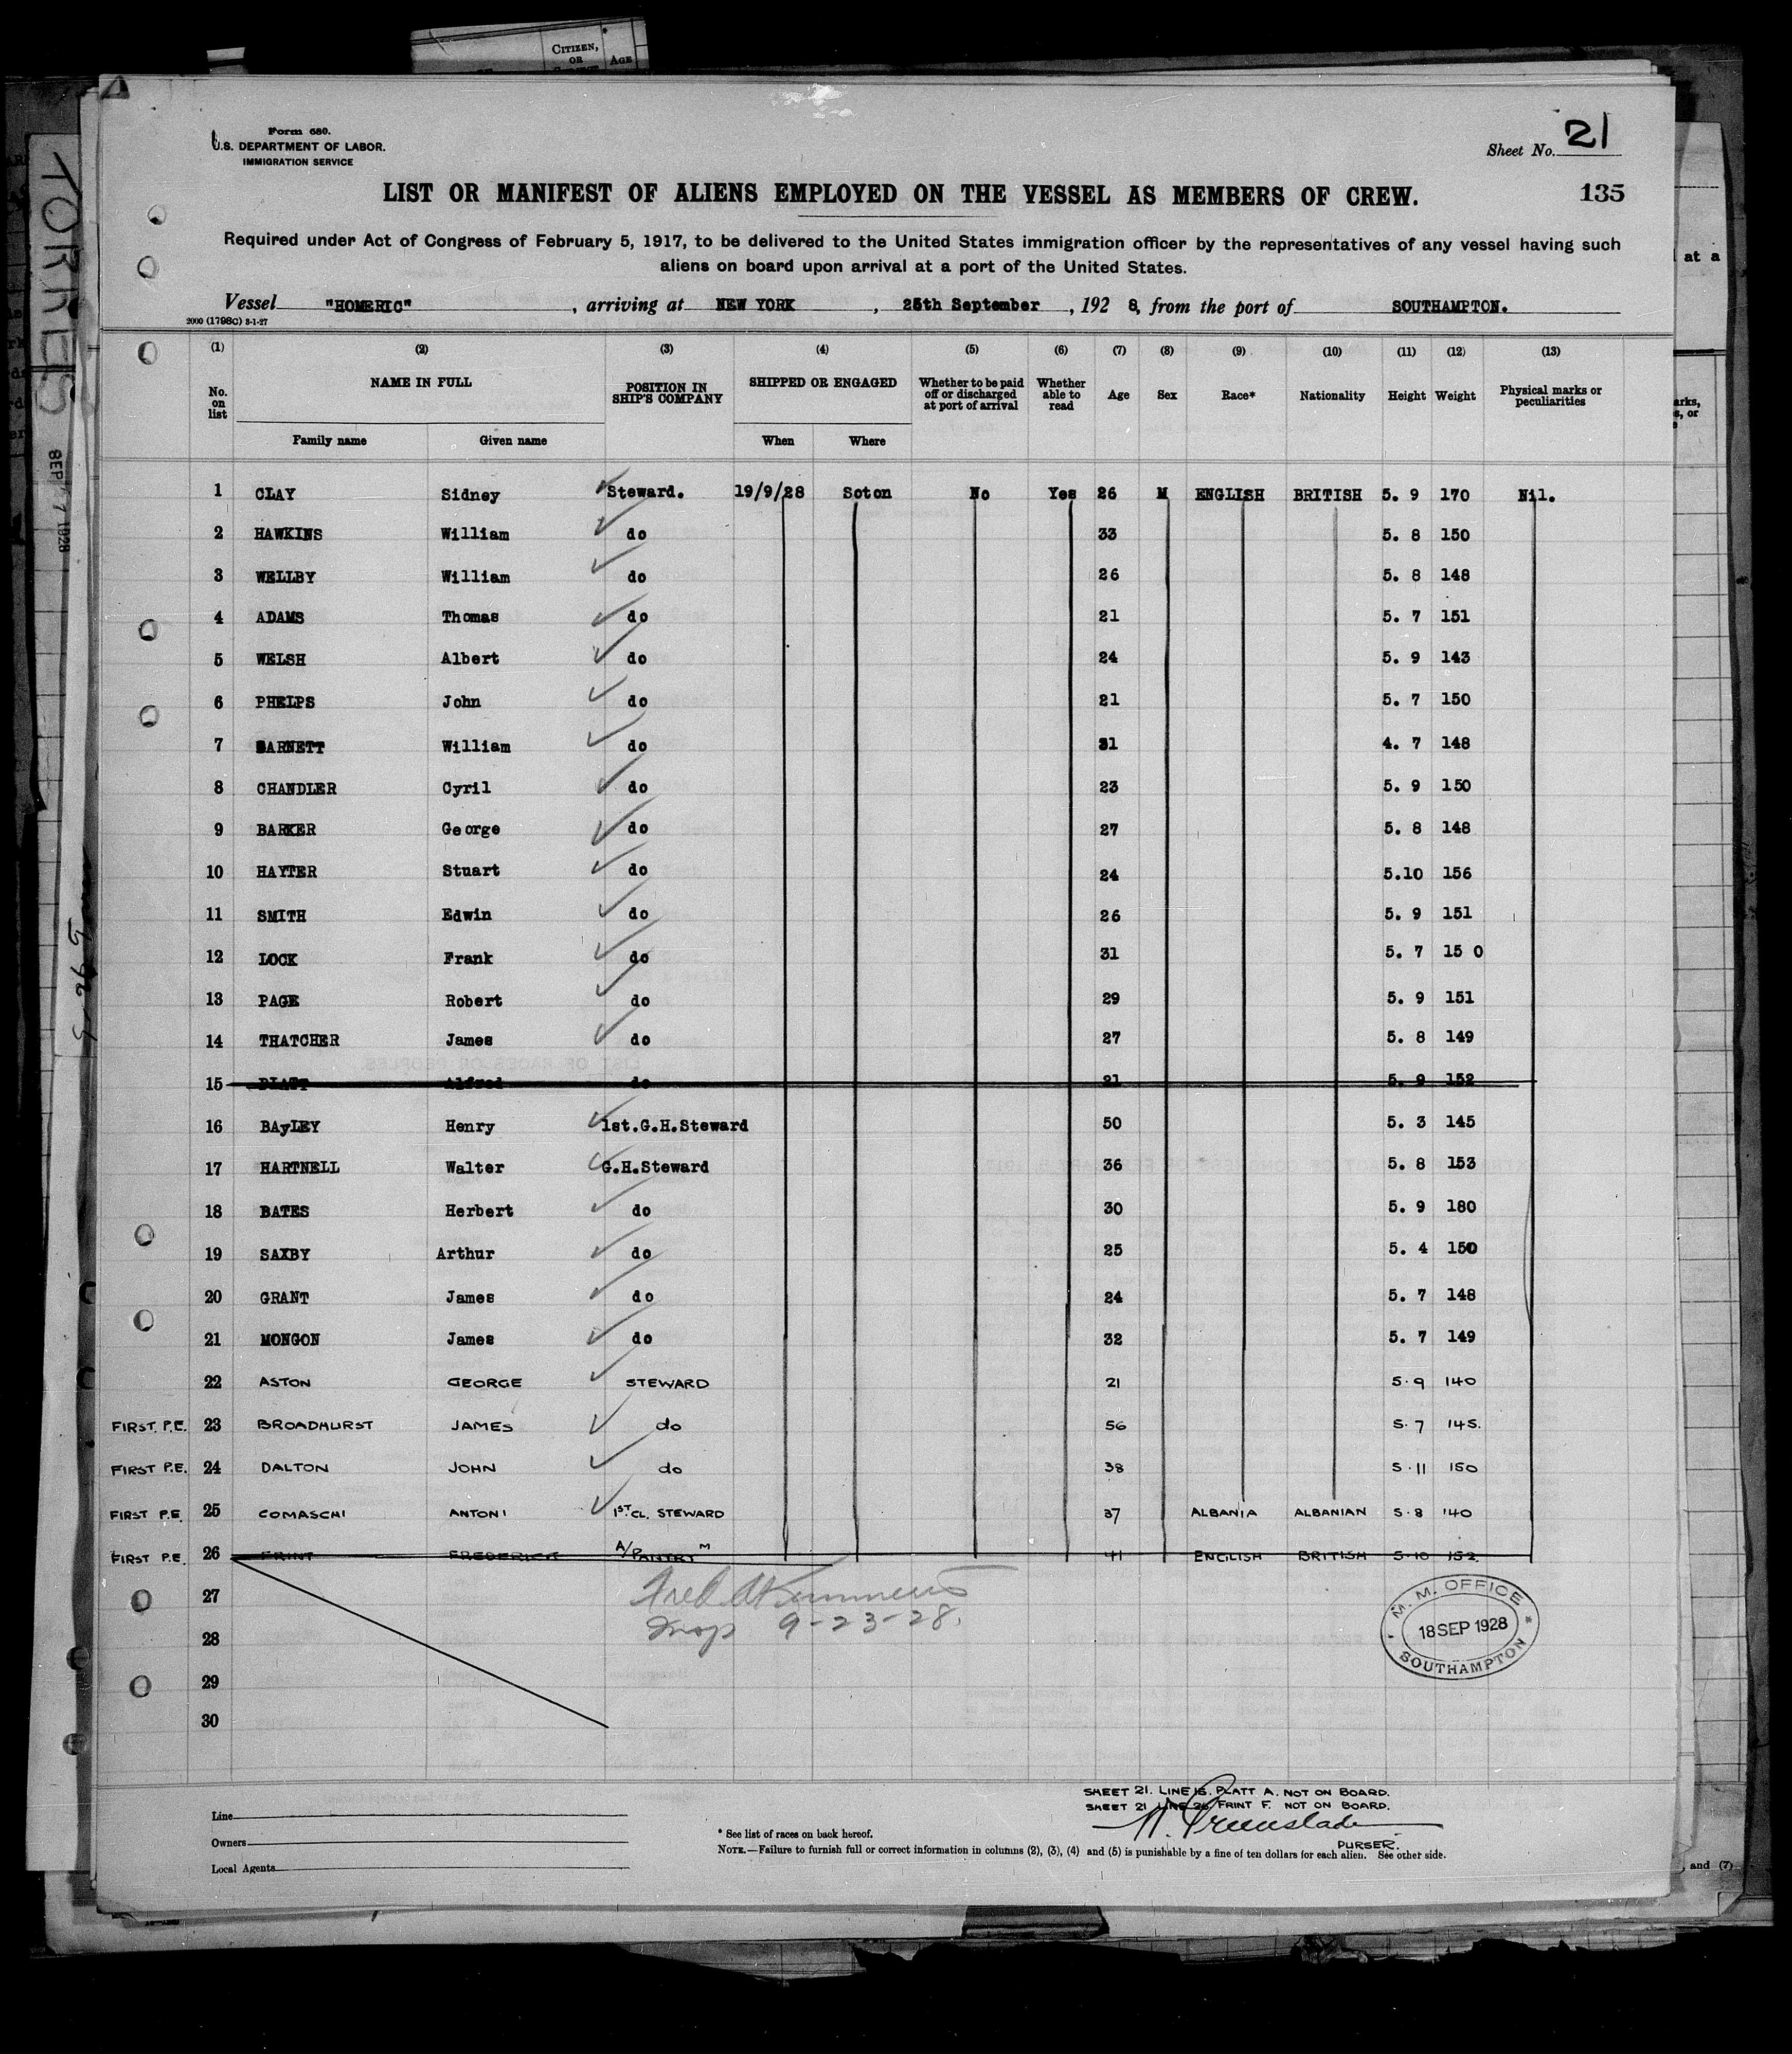 CITIZEN,
OR
AGE
TORRES
SEP 7 1928
Form 680.
U.S. DEPARTMENT OF LABOR.
IMMIGRATION SERVICE
Sheet No. 21
135
LIST OR MANIFEST OF ALIENS EMPLOYED ON THE VESSEL AS MEMBERS OF CREW.
Required under Act of Congress of February 5, 1917, to be delivered to the United States immigration officer by the representatives of any vessel having such
aliens on board upon arrival at a port of the United States.
Vessel "HOMERIC", arriving at NEW YORK, 25th September, 1928, from the port of SOUTHAMPTON.
2000 (1798C) 8-1-27
(1) (2) (3) (4) (5) (6) (7) (8) (9) (10) (11) (12) (13)
No. on list NAME IN FULL POSITION IN SHIP'S COMPANY SHIPPED OR ENGAGED Whether to be paid off or discharged at port of arrival Whether able to read Age Sex Race* Nationality Height Weight Physical marks or peculiarities
Family name Given name When Where
1 CLAY Sidney Steward. 19/9/28 Soton No Yes 26 M ENGLISH BRITISH 5. 9 170 Nil.
2 HAWKINS William do 33 5. 8 150
3 WELLBY William do 26 5. 8 148
4 ADAMS Thomas do 21 5. 7 151
5 WELSH Albert do 24 5. 9 143
6 PHELPS John do 21 5. 7 150
7 BARNETT William do 31 4. 7 148
8 CHANDLER Cyril do 23 5. 9 150
9 BARKER George do 27 5. 8 148
10 HAYTER Stuart do 24 5.10 156
11 SMITH Edwin do 26 5. 9 151
12 LOCK Frank do 31 5. 7 15 0
13 PAGE Robert do 29 5. 9 151
14 THATCHER James do 27 5. 8 149
15 PLATT Alfred do 21 5. 9 152
16 BAyLEY Henry 1st.G.H.Steward 50 5. 3 145
17 HARTNELL Walter G.H.Steward 36 5. 8 153
18 BATES Herbert do 30 5. 9 180
19 SAXBY Arthur do 25 5. 4 150
20 GRANT James do 24 5. 7 148
21 MONGON James do 32 5. 7 149
22 ASTON GEORGE STEWARD 21 5.9 140
FIRST. P.E. 23 BROADHURST JAMES do 56 5.7 145.
FIRST P.E. 24 DALTON JOHN do 38 5.11 150
FIRST P.E. 25 COMASCHI ANTONI 1ST CL. STEWARD 37 ALBANIA ALBANIAN 5.8 140
FIRST P.E. 26 FRINT FREDERICK A/PANTRY M 41 ENGLISH BRITISH 5.10 152.
27
28 9-23-28.
29
30
M. M. OFFICE
18 SEP 1928
SOUTHAMPTON
SHEET 21. LINE 15. PLATT A. NOT ON BOARD.
SHEET 21 LINE 26 FRINT F. NOT ON BOARD.
PURSER.
Line
Owners
Local Agents
* See list of races on back hereof.
NOTE.—Failure to furnish full or correct information in columns (2), (3), (4) and (5) is punishable by a fine of ten dollars for each alien. See other side.
at a
and (7)